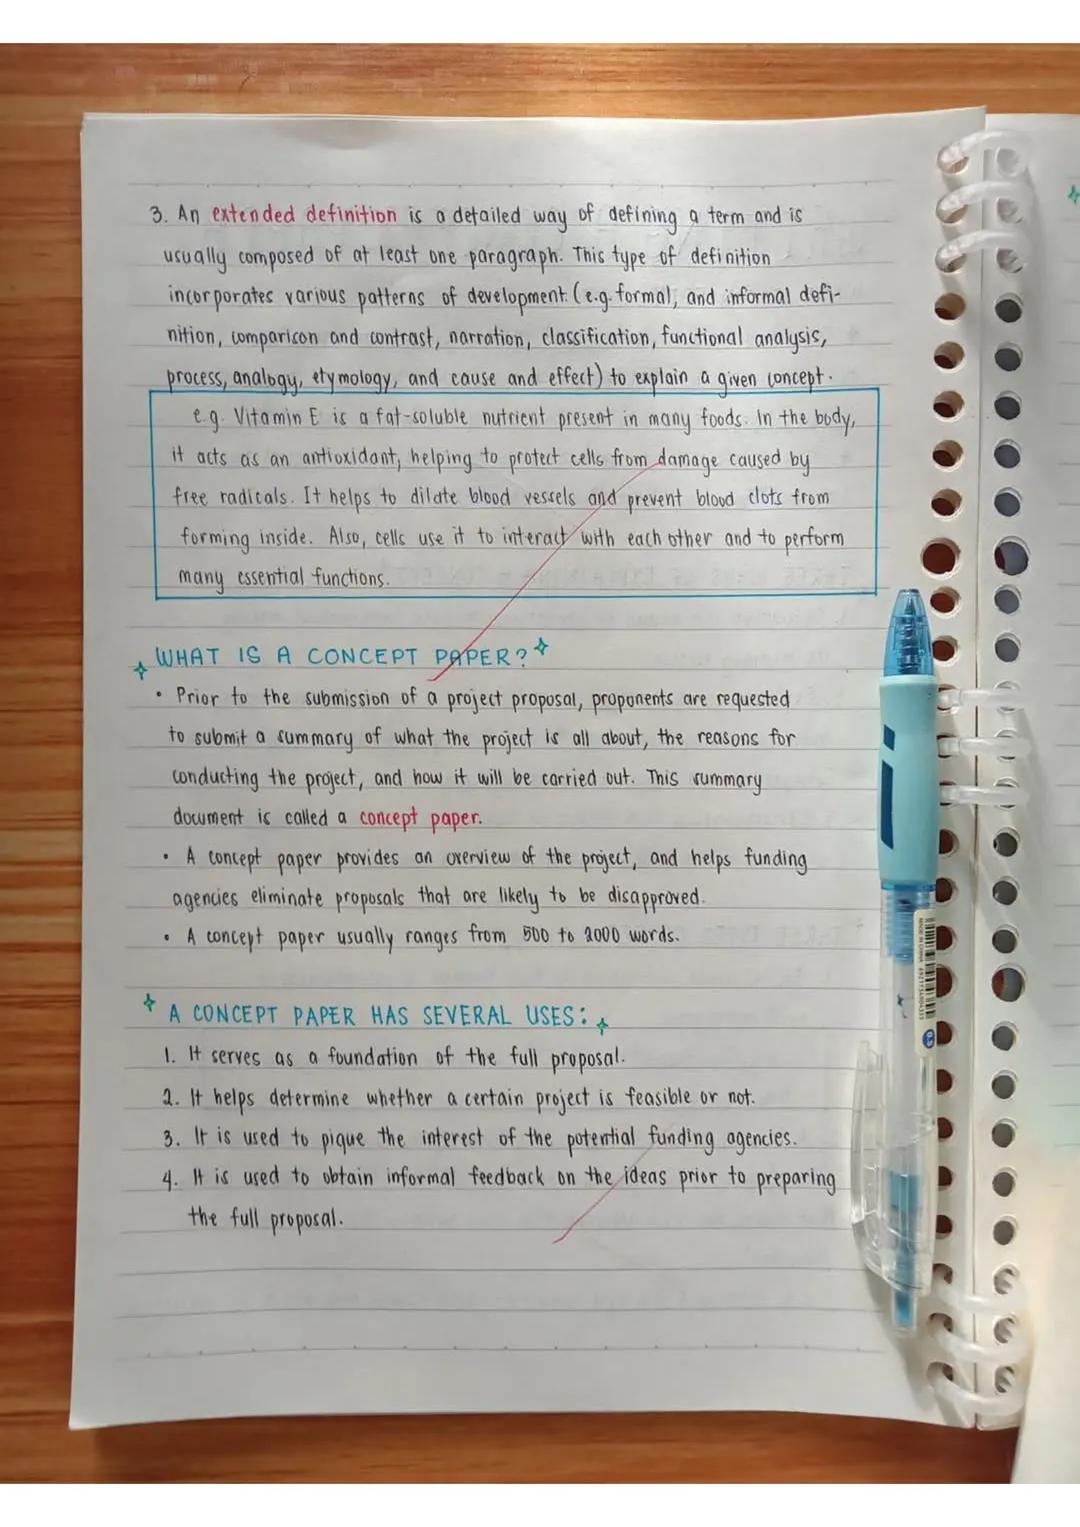 3. An extended definition is a detailed way of defining a term and is
usually composed of at least one paragraph. This type of definition
incorporates various patterns of development (e.g. formal, and informal defi-
nition, comparison and contrast, narration, classification, functional analysis,
process, analogy, etymology, and cause and effect) to explain a given concept.
e.g. Vitamin E is a fat-soluble nutrient present in many foods. In the body,
it acts as an antioxidant, helping to protect cells from damage caused by
free radicals. It helps to dilate blood vessels and prevent blood clots from
forming inside. Also, cells use it to interact with each other and to perform
many essential functions.
WHAT IS A CONCEPT PAPER?
• Prior to the submission of a project proposal, proponents are requested
to submit a summary of what the project is all about, the reasons for
conducting the project, and how it will be carried out. This summary
document is called a concept paper.
• A concept paper provides an overview of the project, and helps funding
agencies eliminate proposals that are likely to be disapproved.
• A concept paper usually ranges from 500 to 2000 words.
A CONCEPT PAPER HAS SEVERAL USES:
1. It serves as a foundation of the full proposal.
2. It helps determine whether a certain project is feasible or not.
3. It is used to pique the interest of the potential funding agencies.
4. It is used to obtain informal feedback on the ideas prior to preparing
the full proposal.
MADE IN CHINA